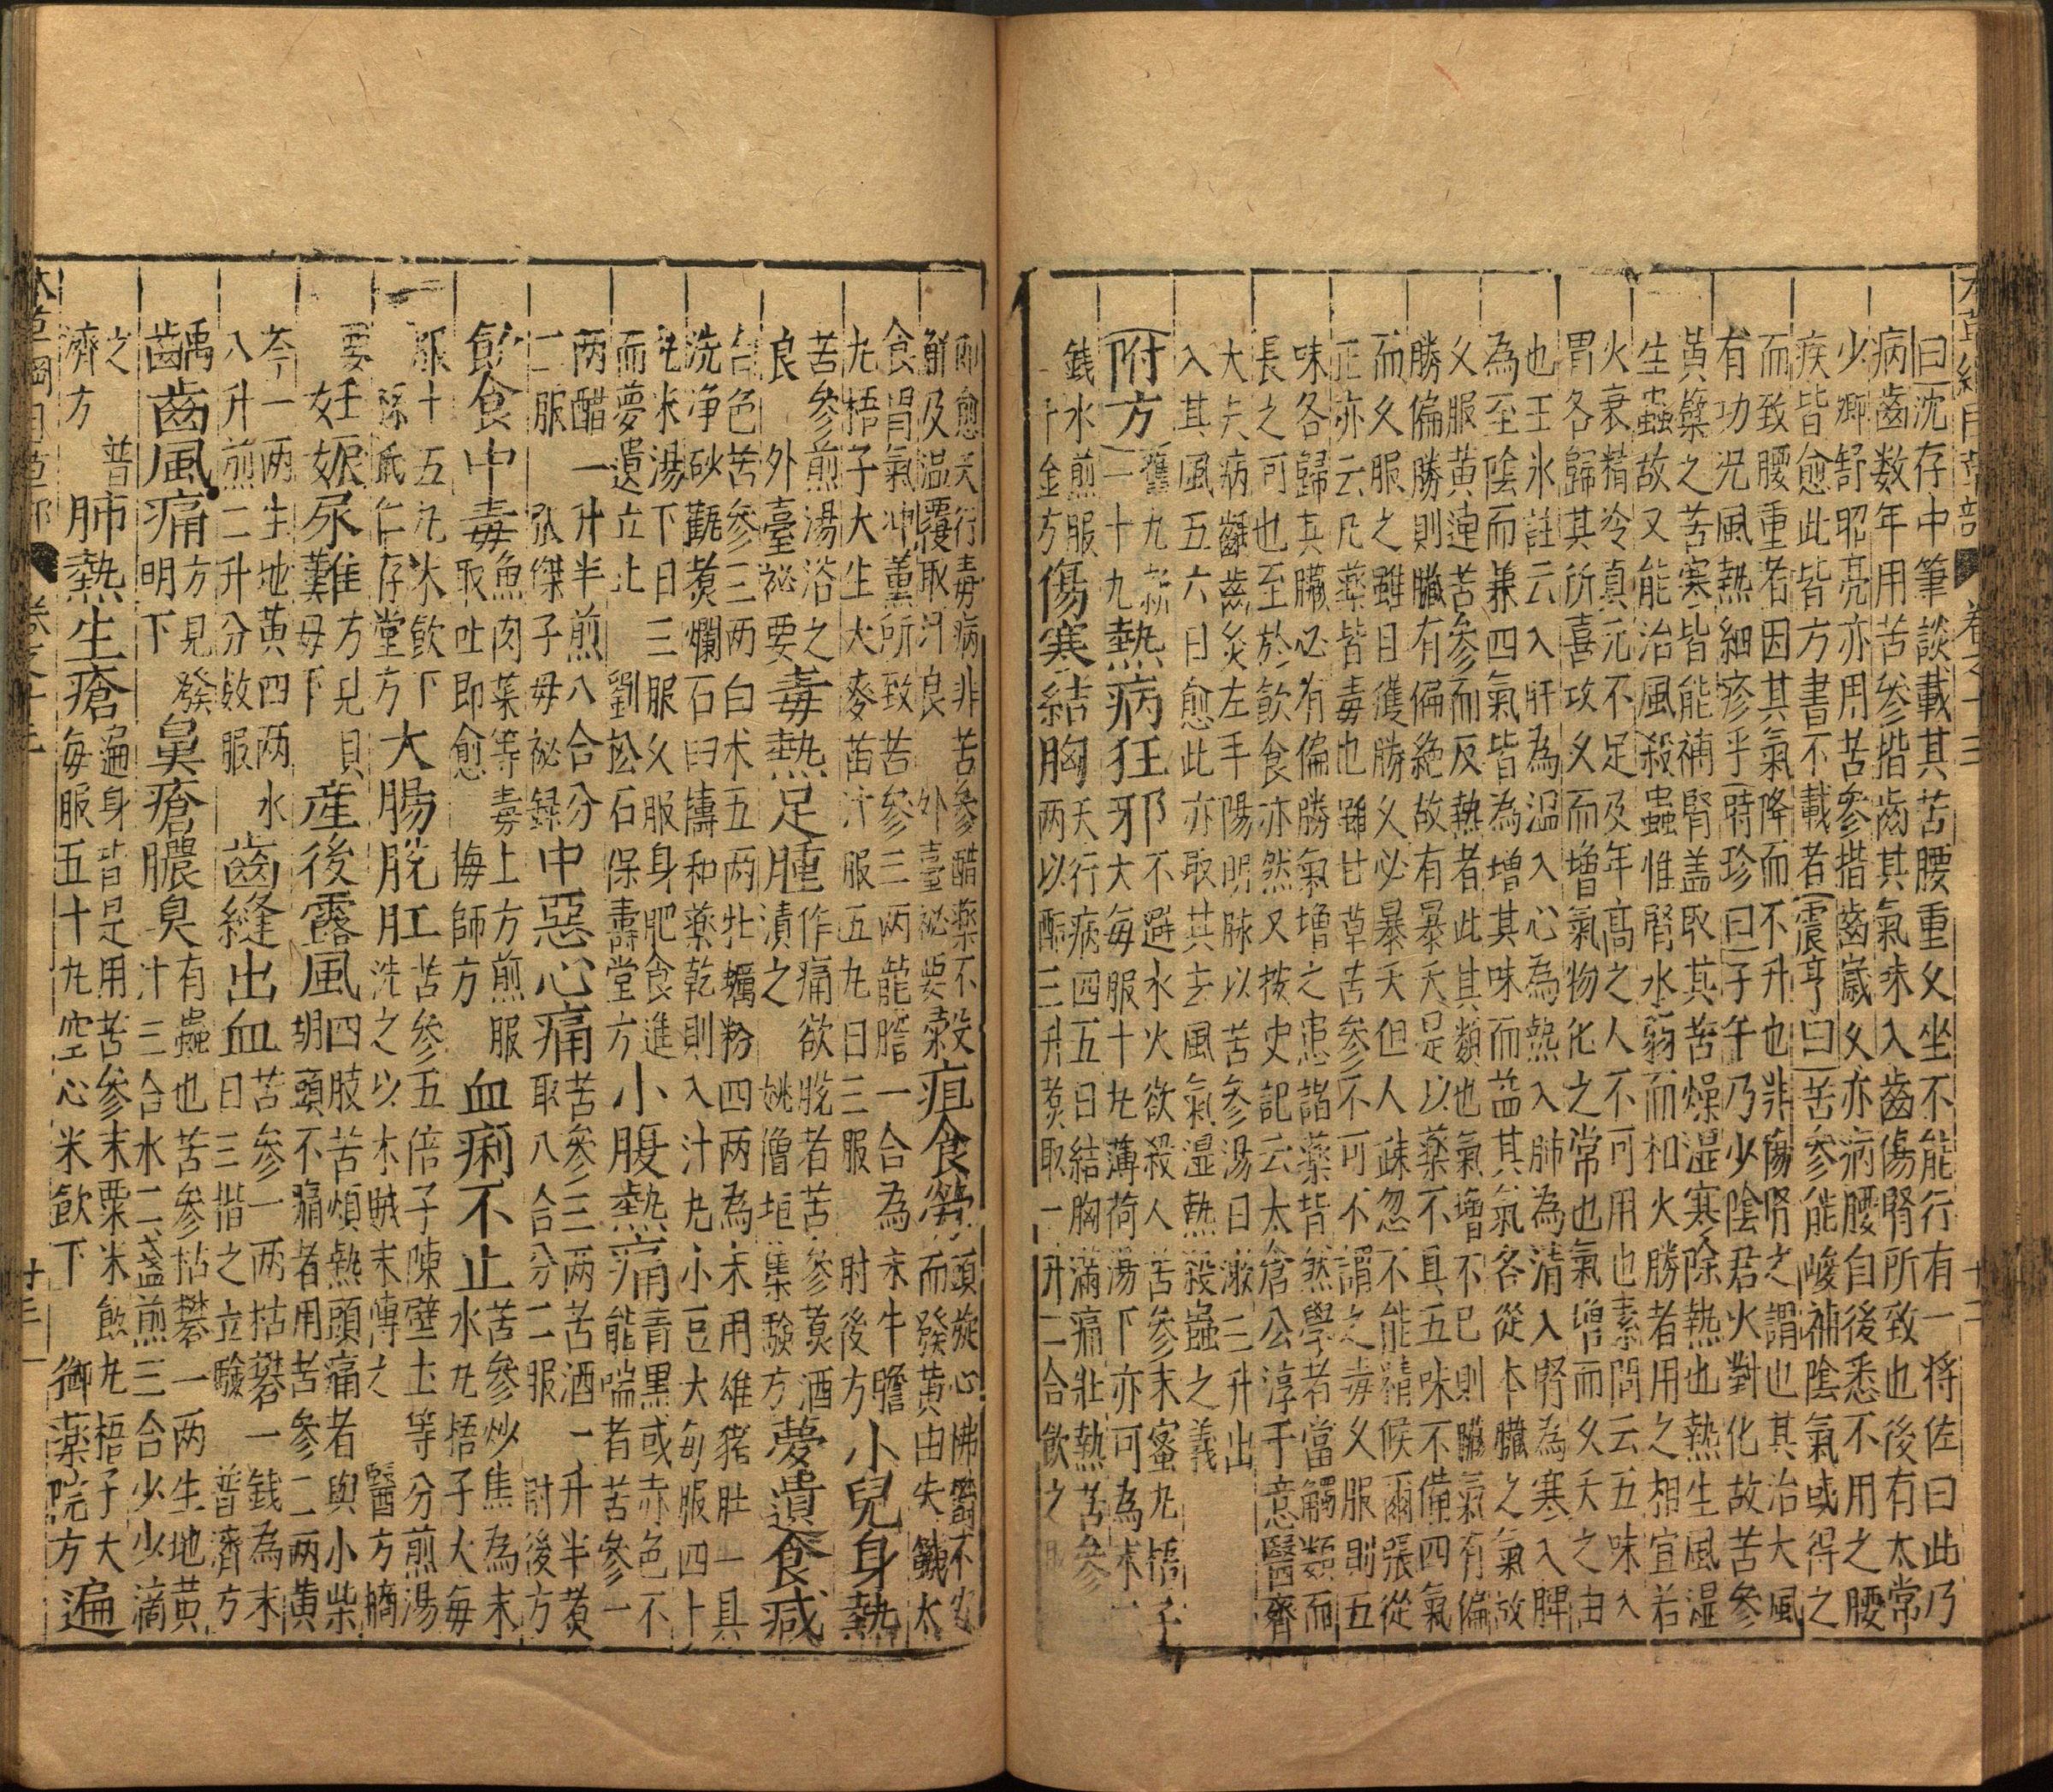 曰沈存中筆談載其苦腰重久坐不能行有一将佐曰此乃
病齒数年用苦參揩齒其氣味入齒傷腎所致也後有太常
少卿舒昭亮亦用苦參揩齒歲久亦病腰自後悉不用之腰
疾皆愈此皆方書不載者震亨曰苦參能峻補陰氣或得之
而致腰重者因其氣降而不升也非傷腎之謂也其治大風
有功况風熱細疹乎時珍曰子午乃少陰君火對化故苦參
黄蘗之苦寒皆能補腎盖取其苦燥湿寒除熱也熱生風湿
生蟲故又能治風殺蟲惟腎水弱而相火勝者用之相宜若
火衰精冷真元不足及年高之人不可用也素問云五味入
胃各歸其所喜攻久而增氣物化之常也氣增而久夭之由
也王氷註云入肝為温入心為熱入肺為清入腎為寒入脾
為至陰而兼四氣皆為增其味而益其氣各從本臟之氣故
久服黄連苦參而反熱者此其類也氣增不已則臟氣有偏
勝偏勝則臟有偏絶故有暴夭是以藥不具五味不備四氣
而久服之雖且獲勝久必暴夭但人疎忽不能精候爾張從
正亦云凡藥皆毒也雖甘草苦參不可不謂之毒久服則五
味各歸其臟必有偏勝氣增之患諸藥皆然學者當觸類而
長之可也至於飲食亦然又按史記云太倉公淳于意醫齊
大夫病齲齒灸左手陽明脉以苦參湯日漱三升出
入其風五六日愈此亦取其去風氣湿熱殺蟲之義
附方舊九新二十九熱病狂邪不避水火欲殺人苦參末蜜丸梧子大每服十丸薄荷湯下亦可為末二
錢水煎服千金方傷寒結胸天行病四五日結胸滿痛壯熱苦參一两以醋三升煑取一升二合飲之
即愈天行毒病非苦參醋藥不
解及温覆取汗良外臺祕要糓疸食勞頭旋心怫鬱不安而發黄由失飢太
食胃氣冲薰所致苦參三两龍膽一合為末牛膽
丸梧子大生大麥苗汁服五丸日三服肘後方小兒身熱
苦參煎湯浴之良外臺祕要毒熱足腫作痛欲脫者苦參煑酒漬之姚僧垣集驗方夢遺食減
白色苦參三两白术五两牡蠣粉四两為末用雄猪肚一具
洗净砂觀煑爛石臼擣和藥乾則入汁丸小豆大每服四十
丸米湯下日三服久服身肥食進
而夢遺立止劉松石保壽堂方小腹熱痛青黑或赤色不能喘者苦參一
两醋一升半煎八合分
二服張傑子母祕録中惡心痛苦參三两苦酒一升半煑取八合分二服肘後方
飲食中毒魚肉菜等毒上方煎服取吐即愈梅師方血痢不止苦參炒焦為末水丸梧子大每
服十五丸米飲下
孫氏仁存堂方大腸脫肛苦參五倍子陳壁土等分煎湯洗之以木賊末傅之醫方摘
要妊娠尿難方見貝母下産後露風四肢苦煩熱頭痛者與小柴胡頭不痛者用苦參二两黄
芩一两生地黄四两水
八升煎二升分数服齒縫出血苦參一两枯礬一錢為末日三揩之立驗普濟方
齲齒風痛方見發明下鼻瘡膿臭有蟲也苦參枯礬一两生地黄汁三合水二盞煎三合少少滴
之普濟方肺熱生瘡遍身皆是用苦參末粟米飯丸梧子大每服五十丸空心米飲下御藥院方遍
本草綱目草部
卷之十三
十二